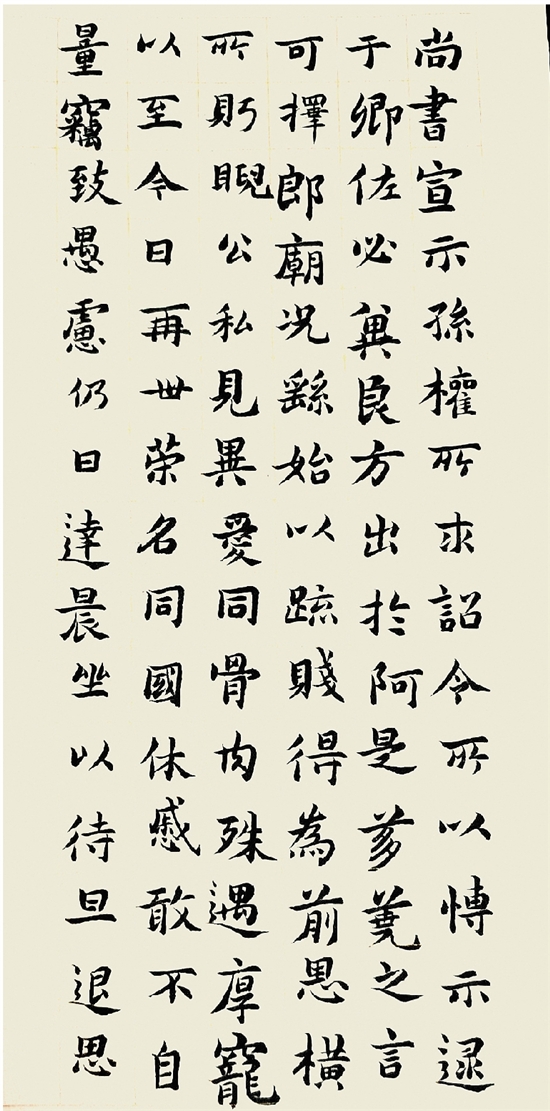 尚書宣示孫權所求詔令所以愽示逮
于卿佐必冀良方出於阿是芻蕘之言
可擇郎廟况繇始以疏賤得為前恩橫
所眄睨公私見異愛同骨肉殊遇厚寵
以至今日再世榮名同國休慼敢不自
量竊致愚慮仍日達晨坐以待旦退思